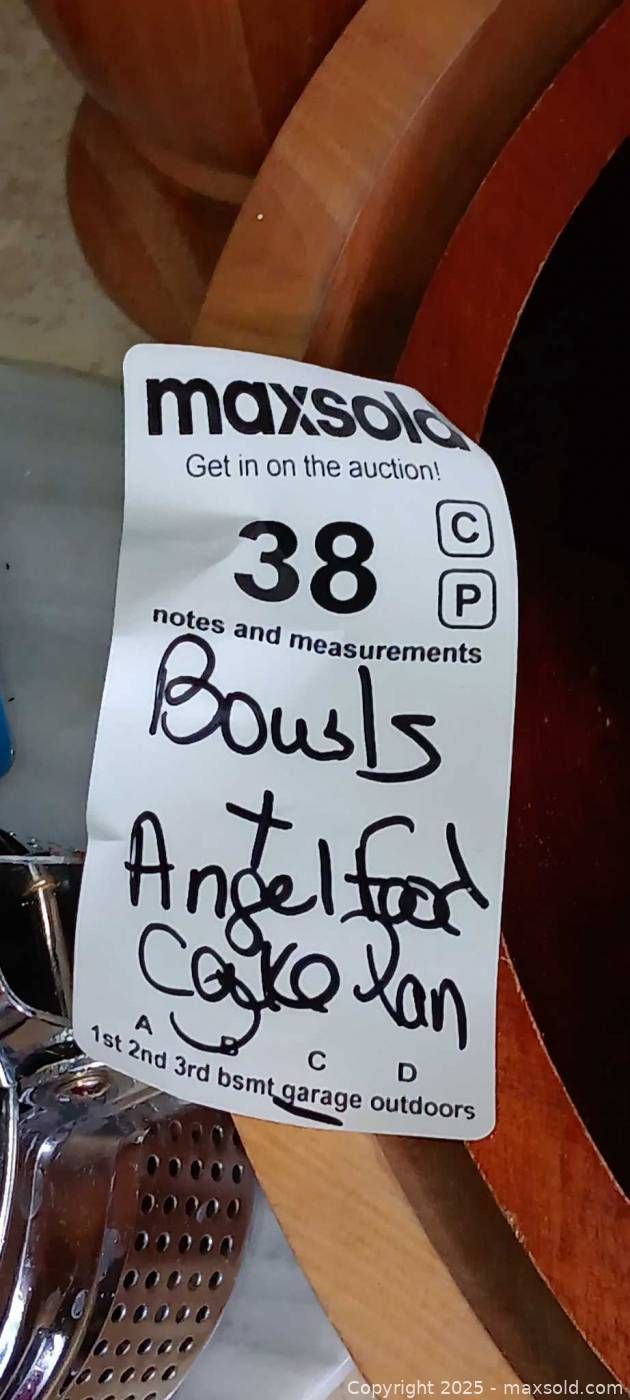 maxsold
Get in on the auction!
38
C
P
notes and measurements
Bowls
+
Angel food
Cake Pan
A B C D
1st 2nd 3rd bsmt garage outdoors
Copyright 2025 - maxsold.com